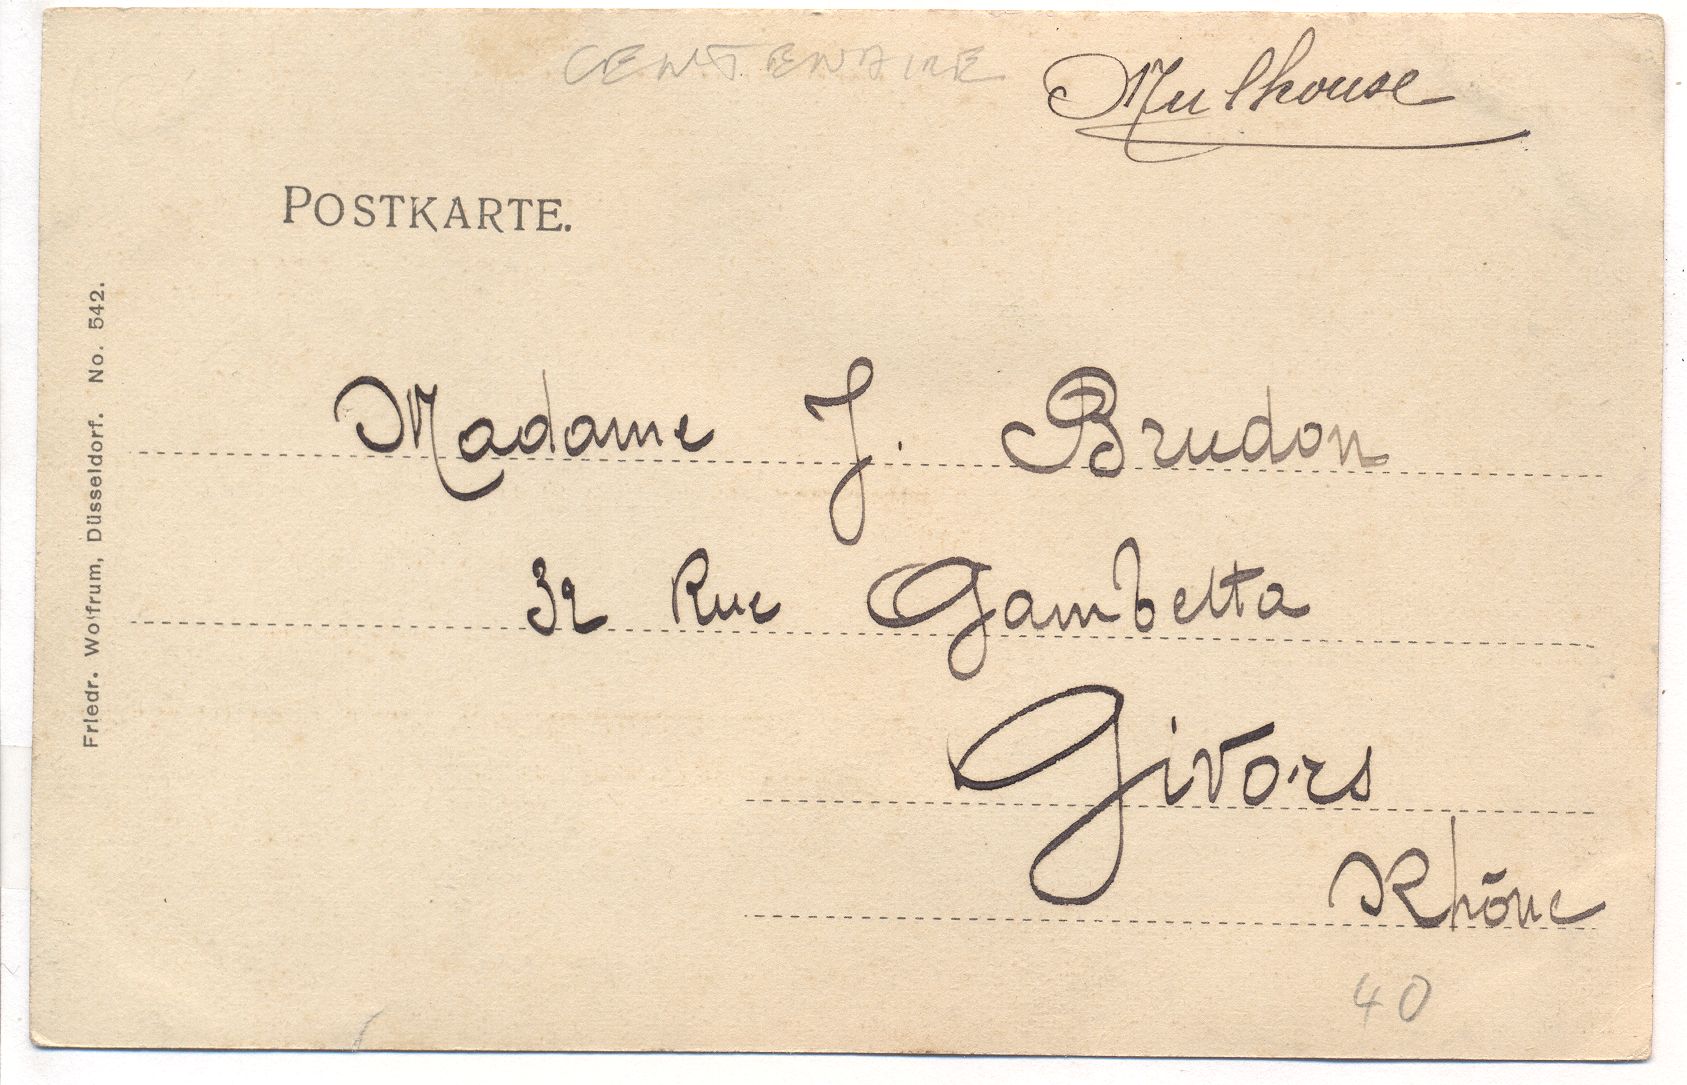 CENTENAIRE
Mulhouse
POSTKARTE.
Friedr. Wolfrum, Düsseldorf. No. 542.
Madame J. Brudon
32 Rue Gambetta
Givors
Rhône
40